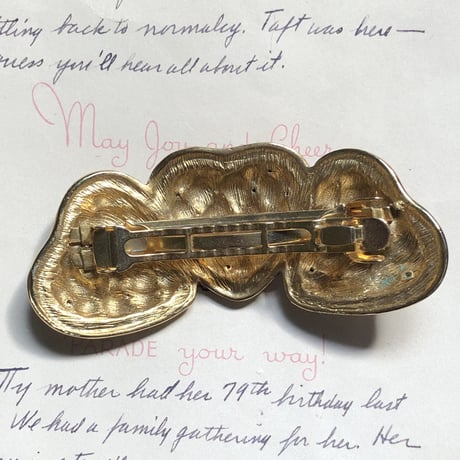 ttling back to normalcy. Taft was here —
guess you'll hear all about it.
May Joy and Cheer
PARADE your way!
My mother had her 79th birthday last
We had a family gathering for her. Her